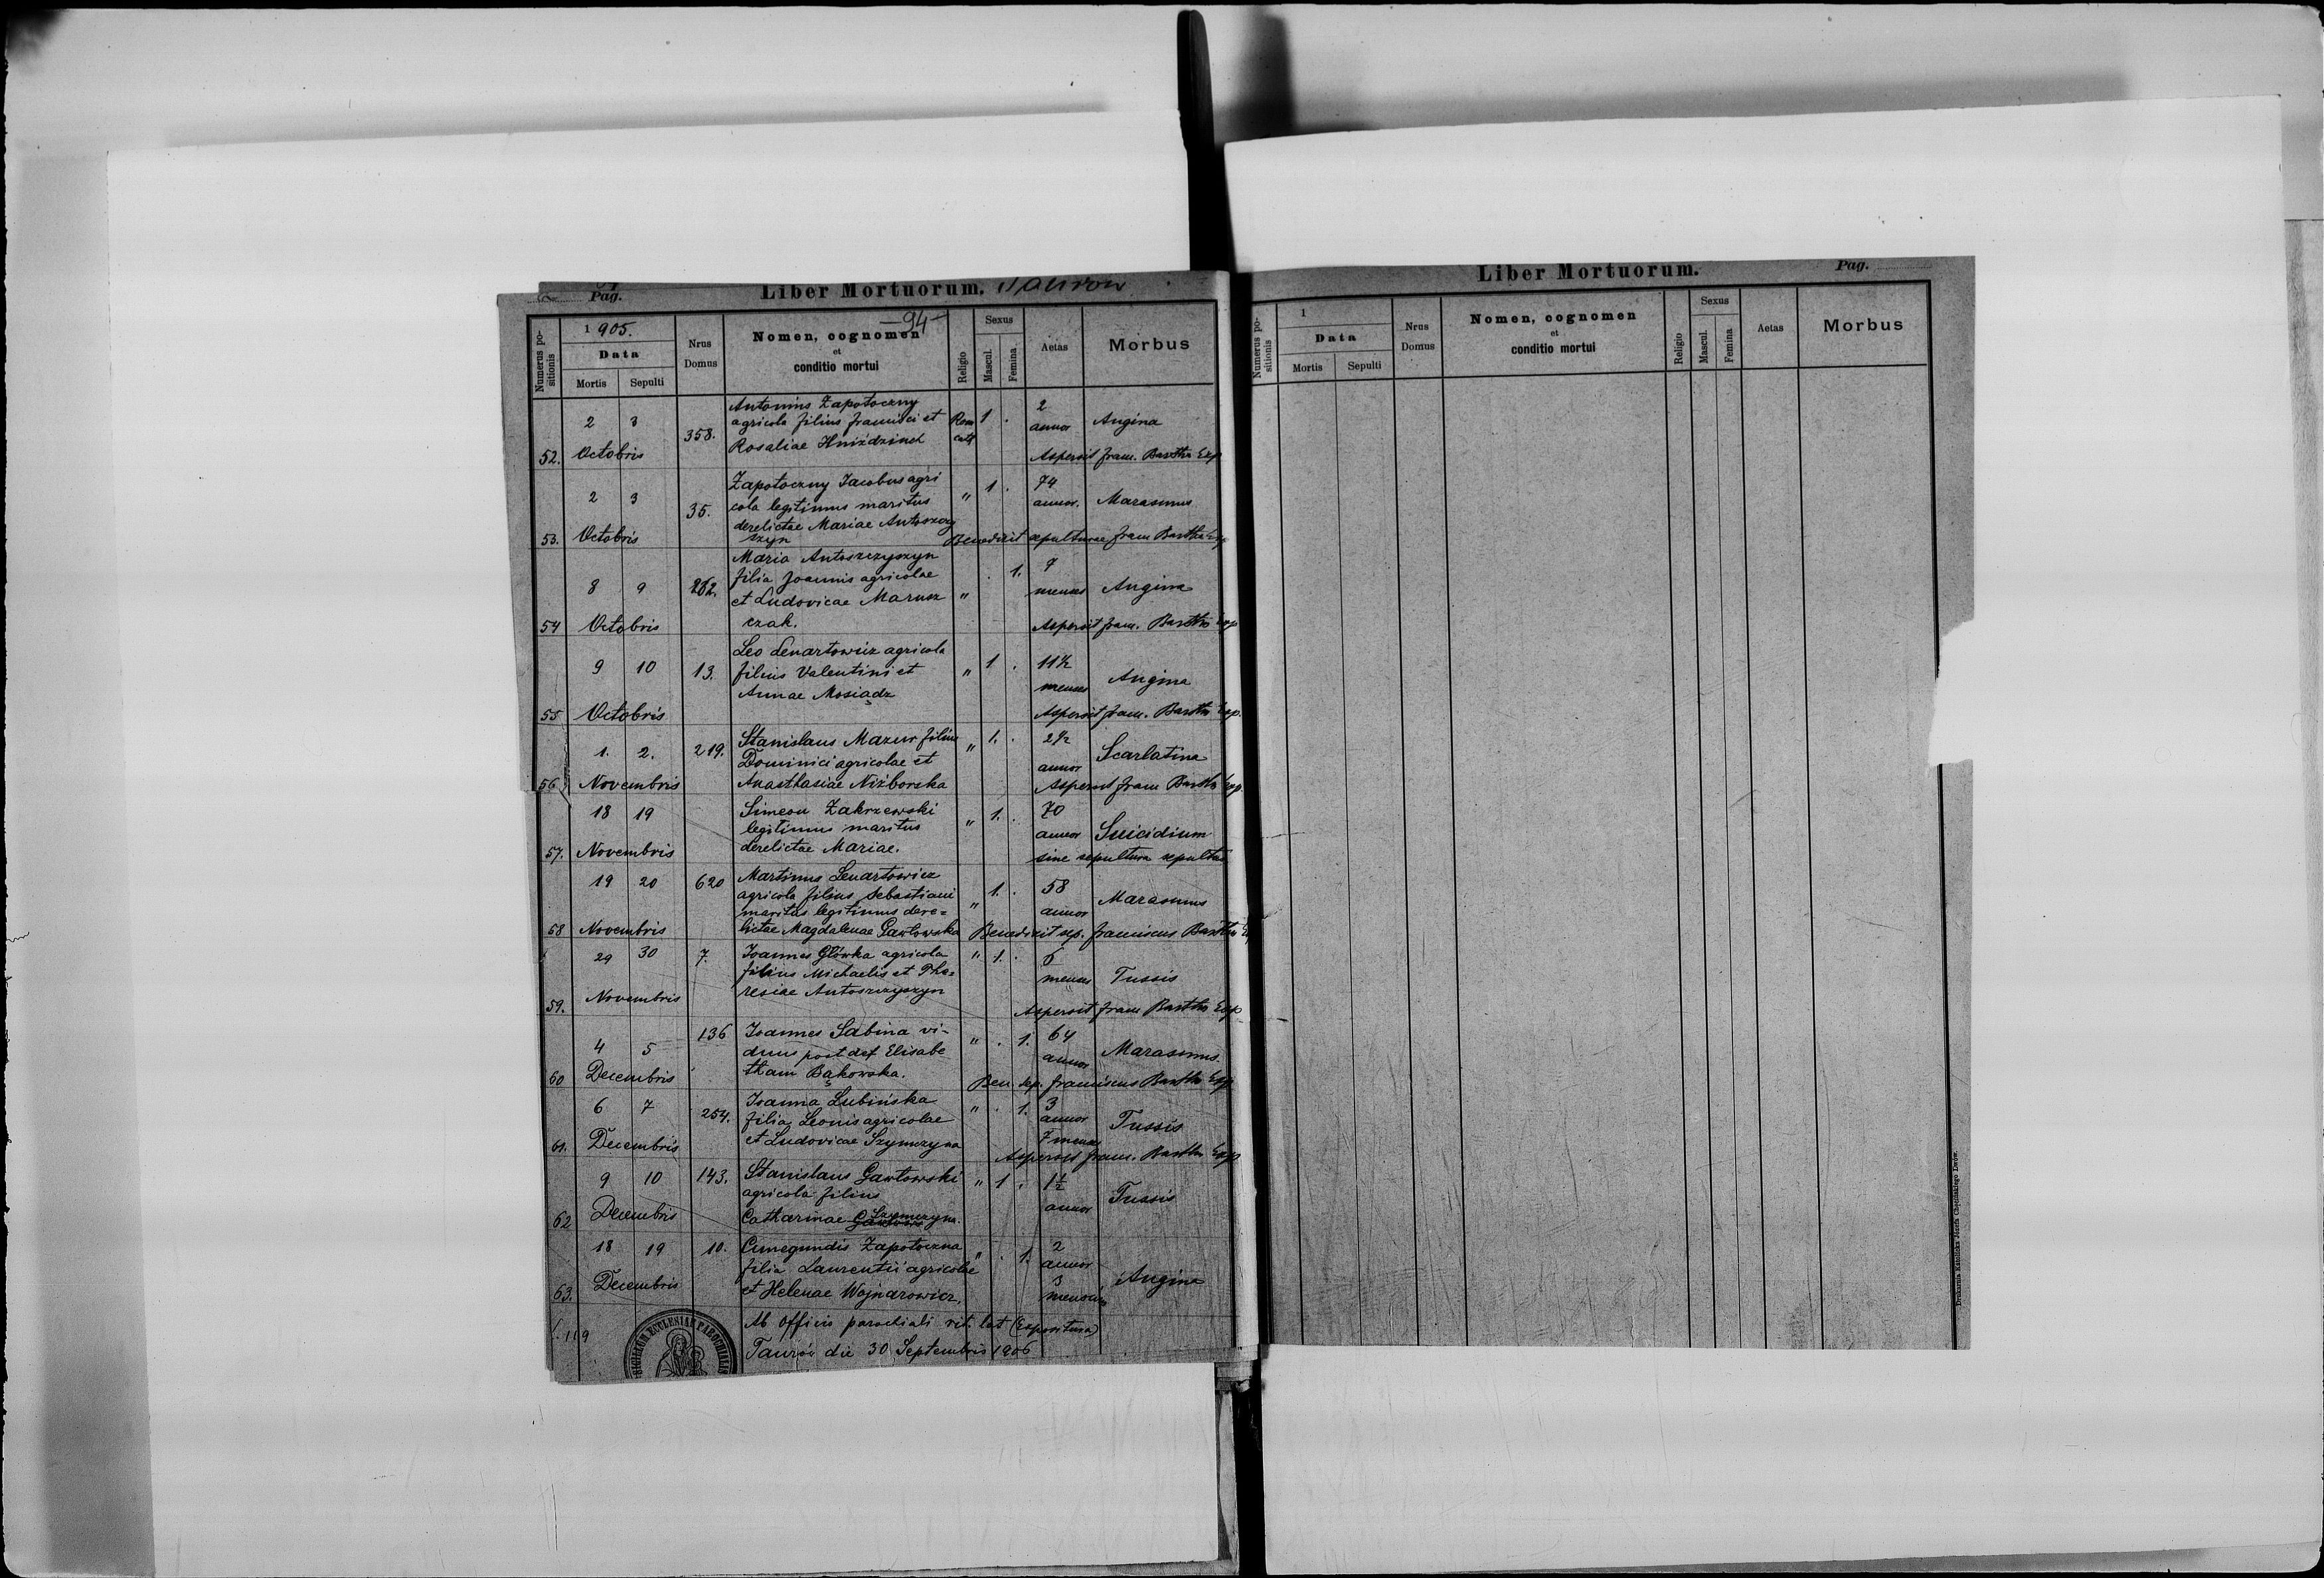 Pag.
Liber Mortuorum. Taurow
—94—
Numerus positionis
1905.
Data
Mortis Sepulti
Nrus Domus
Nomen, cognomen
et
conditio mortui
Religio
Sexus
Mascul.
Femina
Aetas
Morbus
52. 2 3 Octobris 358.
Antonius Zapotoczny
agricola filius Francisci et
Rosaliae Hniździuch
Rom cath 1 . 2 annor Angina
Aspersit Franc. Bartha Exp
53. 2 3 Octobris 35.
Zapotoczny Jacobus agri
cola legitimus maritus
derelictae Mariae Antoszczy
szyn
" 1 . 74 annor. Marasmus
Benedixit sepulturae Franc Bartha Exp
54 8 9 Octobris 262.
Maria Antoszczyszyn
filia Joannis agricolae
et Ludovicae Marusz
czak.
" . 1. 7 menses Angina
Aspersit Franc. Bartha Exp
55 9 10 Octobris 13.
Leo Lenartowicz agricola
filius Valentini et
Annae Mosiądz
" 1 . 11½ menses Angina
Aspersit Franc. Bartha Exp.
56 1. 2. Novembris 219.
Stanislaus Mazur filius
Dominici agricolae et
Anasthasiae Niżborska
" 1. . 2½ annor Scarlatina
Aspersit Franc Bartha Exp
57. 18 19 Novembris
Simeon Zakrzewski
legitimus maritus
derelictae Mariae.
" 1. . 70 annor Suicidium
sine sepultura sepultus
58 19 20 Novembris 620
Martinus Lenartowicz
agricola filius Sebastiani
maritus legitimus dere=
lictae Magdalenae Gawłowska
" 1. . 58 annor Marasmus
Benedixit sep. Franciscus Bartha
59. 29 30 Novembris 7.
Joannes Główka agricola
filius Michaelis et The=
resiae Antoszczyszyn
" 1. . 6 menses Tussis
Aspersit Franc Bartha Exp
60 4 5 Decembris 136
Joannes Sabina vi-
duus post def Elisabe
tham Bąkowska.
" . 1. 64 annor Marasmus.
Ben. sep. Franciscus Bartha Exp
61. 6 7 Decembris 254.
Joanna Lubińska
filia Leonis agricolae
et Ludovicae Szymczyna
" . 1. 3 annor 7 menses Tussis
Aspersit Franc. Bartha Exp
62 9 10 Decembris 143.
Stanislaus Gawłowski
agricola filius
Catharinae Szymczyna.
" 1 . 1½ annor Tussis
63. 18 19 Decembris 10.
Cunegundis Zapotoczna
filia Laurentii agricolae
et Helenae Wojnarowicz.
" . 1. 2 annor 3 mensium Angina
119
SIGILLUM ECCLESIAE PAROCHIALIS
Ab officio parochiali rit. lat (Expositura)
Taurów die 30 Septembris 1906
Liber Mortuorum.
Pag.
Numerus positionis
1
Data
Mortis Sepulti
Nrus Domus
Nomen, cognomen
et
conditio mortui
Religio
Sexus
Mascul.
Femina
Aetas
Morbus
Drukarnia Katolicka Józefa Chęcińskiego Lwów.